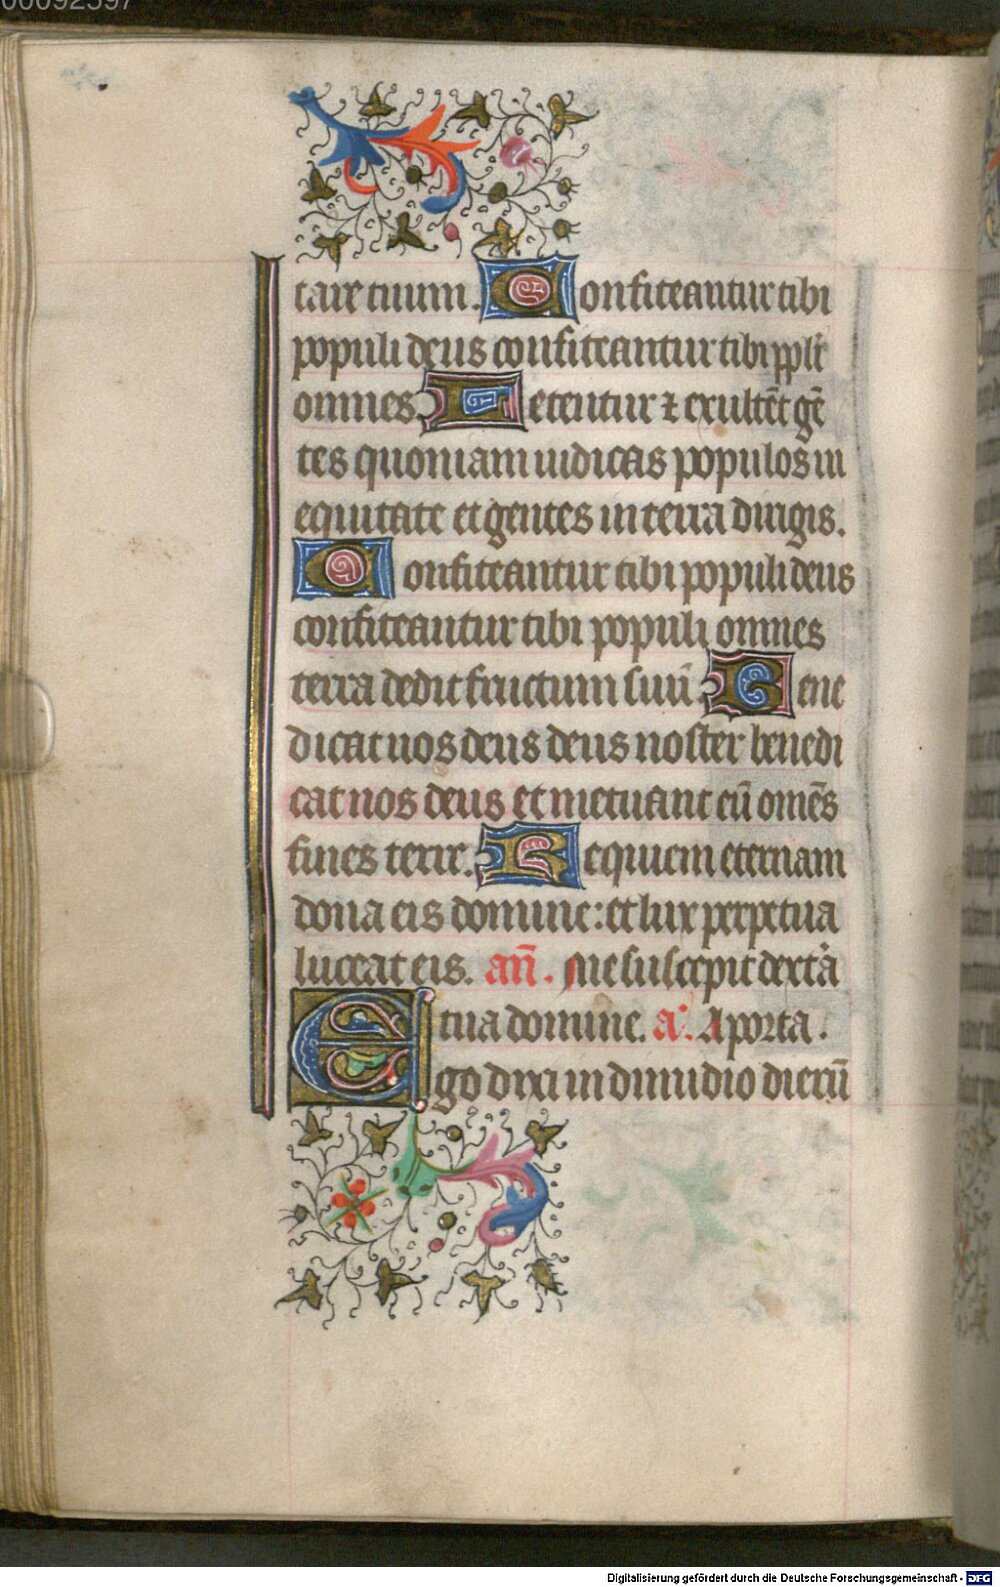 00092597
tare tuum. Confiteantur tibi
populi deus confiteantur tibi ppli
omnes. Letentur ⁊ exultēt gē
tes quoniam iudicas populos in
equitate et gentes in terra dirigis.
Confiteantur tibi populi deus
confiteantur tibi populi omnes
terra dedit fructum suū. Bene
dicat nos deus deus noster benedi
cat nos deus et metuant eū omēs
fines terre. Requiem eternam
dona eis domine: et lux perpetua
luceat eis. an̄. Me suscepit dextā
tua domine. a͛. A porta.
Ego dixi in dimidio dierū
Digitalisierung gefördert durch die Deutsche Forschungsgemeinschaft - DFG